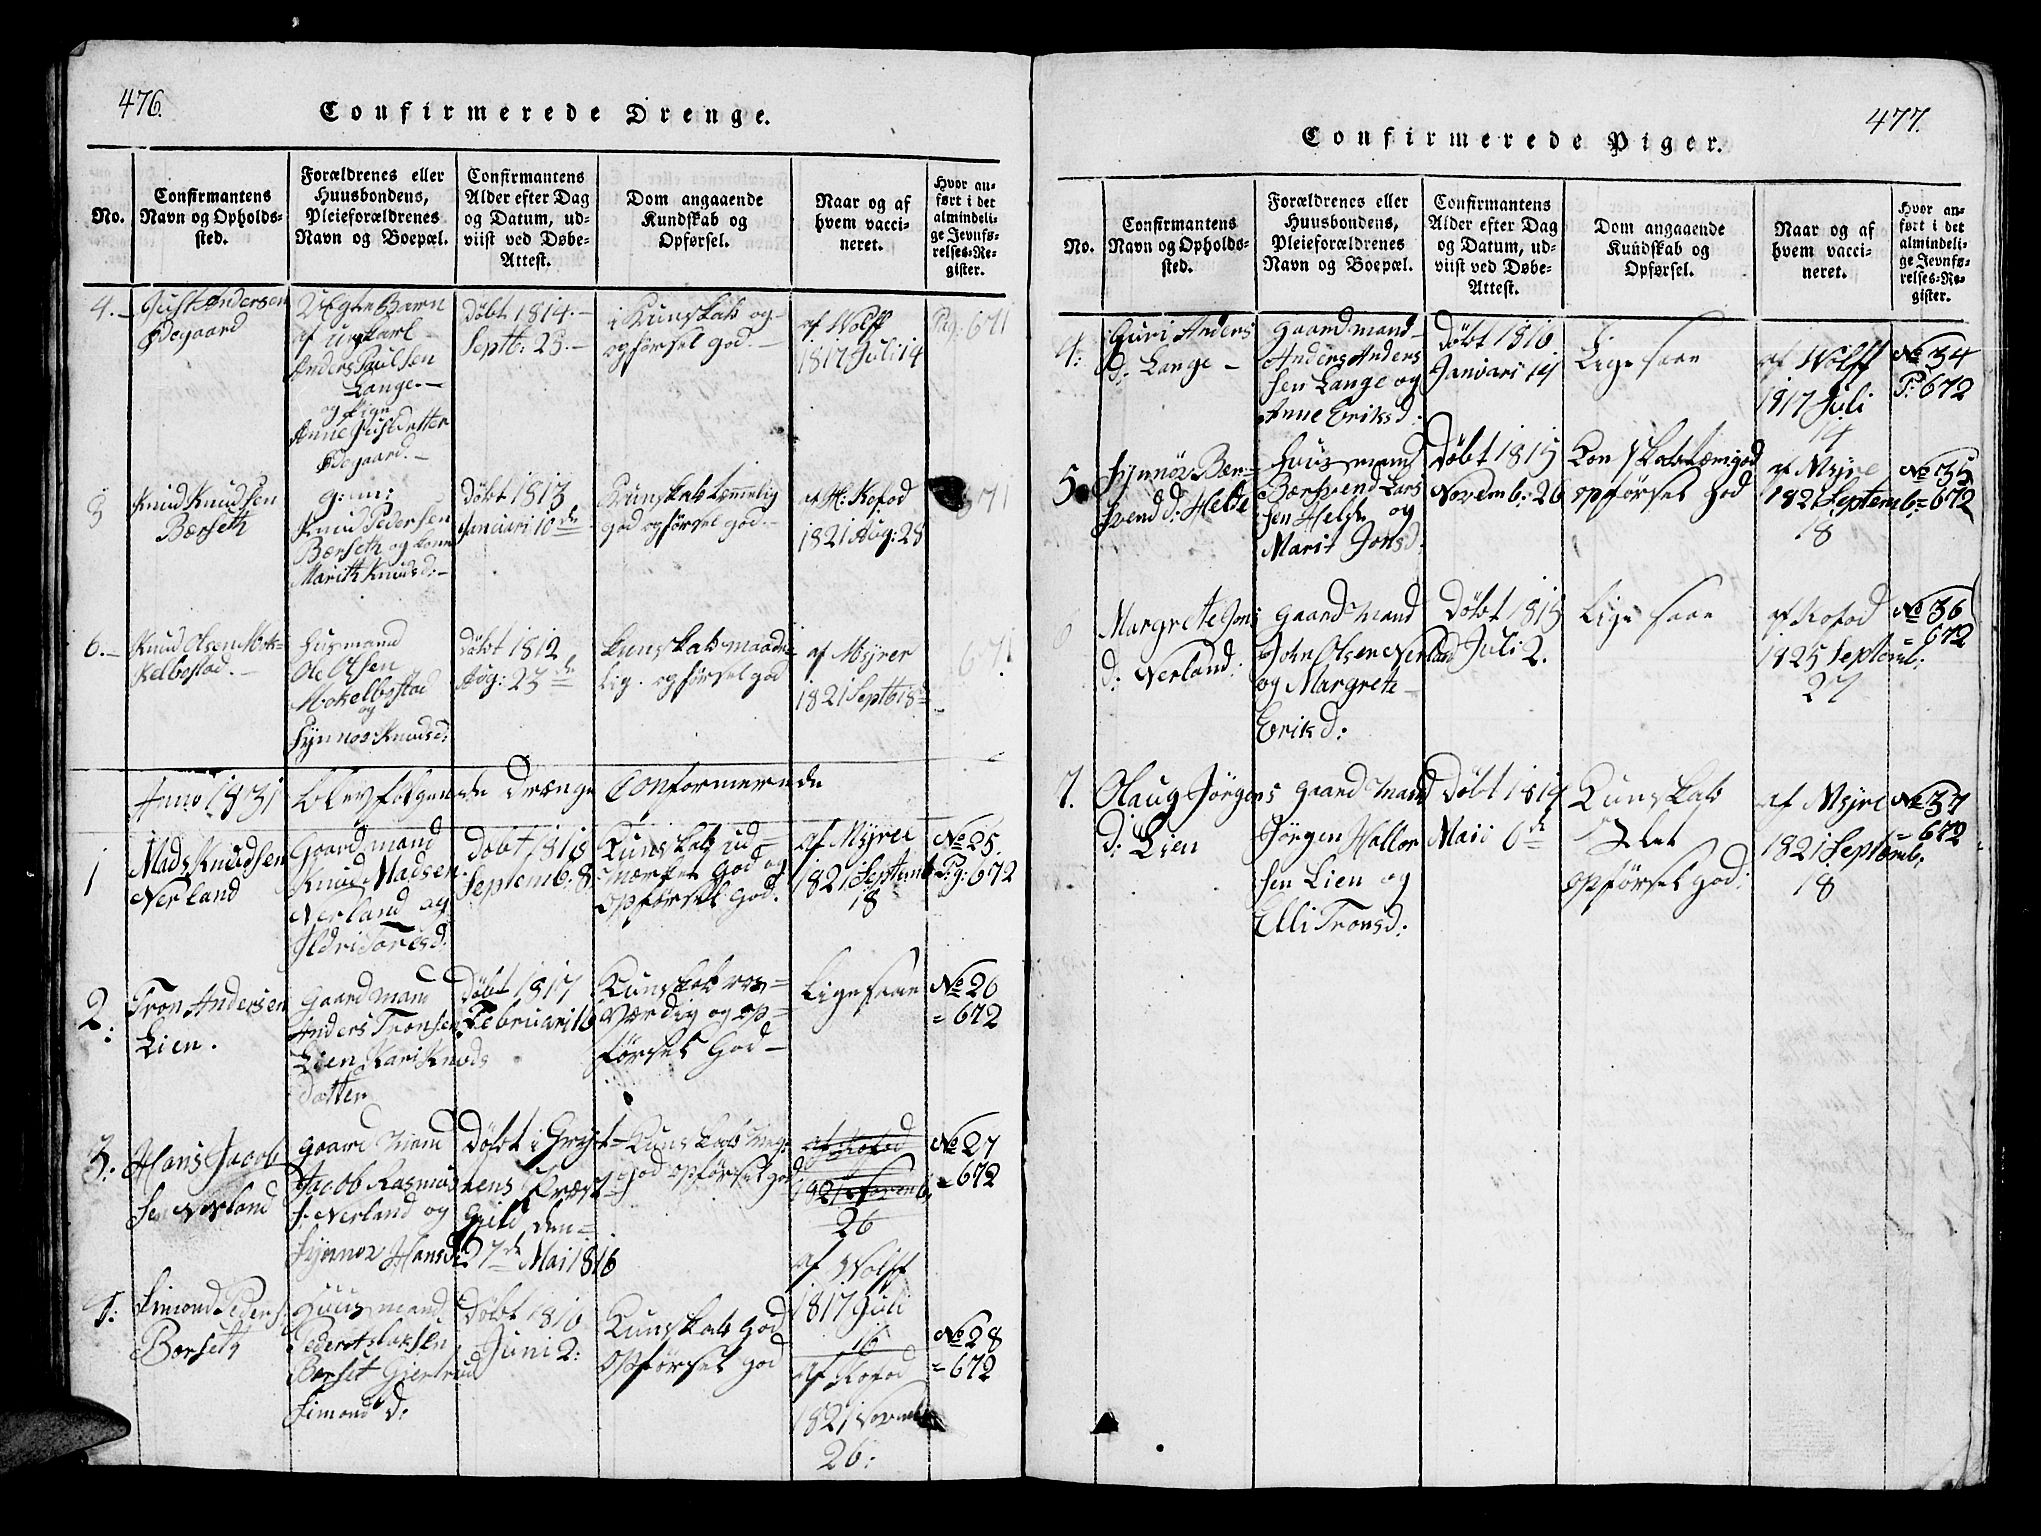 476.
Confirmerede Drenge.
No.
Confirmantens
Navn og Opholds-
sted.
Forældrenes eller
Huusbondens,
Pleieforældrenes
Navn og Boepæl.
Confirmantens
Alder efter Dag
og Datum, ud-
viist ved Døbe-
Attest.
Dom angaaende
Kundskab og
Opførsel.
Naar og af
hvem vacci-
neret.
Hvor an-
ført i det
almindeli-
ge Jevnfø-
relses-Re-
gister.
4.
Just Andersen
Ødegaard
Uægte Barn
af ungkarl
Anders Paulsen
Lange.
og Pige
Anne Justdatter
Ødegaard.
Døbt 1814.
Septb: 23.
i Kunskab og
opførsel god.
af Wolff
1817 Juli 14
Pag: 671
5
Knud Knudsen
Børseth
g: m:
Knud Pedersen
Børseth og Kone
Marith Knudsd:
Døbt 1813
Januari 10de
Kunskab temmelig
god opførsel god.
af H: Kofod
1821 Aug: 28
671
6.
Knud Olsen Mok-
kelbostad.
Husmand
Ole Olsen
Mokelbostad
og
Synnov Knudsd:
Døbt 1812
Aug: 23de
Kunskab maade-
lig. opførsel god
af Myrer
1821 Septb 18de
671
Anno 1831 blev følgende Drænge Conformerede
1
Mads Knudsen
Nerland
Gaardmand
Knud Madsen
Nerland og
Ildri Toresd.
Døbt 1815
Septemb: 8
Kunskab ud-
mærket God og
opførsel God.
af Myre
1821 Septemb
18
No 25.
Pg: 672
2:
Tron Andersen
Lien.
Gaardmand
Anders Tronsen
Lien Kari Knuds
datter
Døbt 1817
Februari 16
Kunskab ros-
værdig og op-
førsel God
Ligesaae
No 26
= 672
3.
Hans Jacob
sen Nerland
Gaard Mand
Jacob Rasmus
s. Nerland og
Synnov Hansd:
Døbt i Gryt-
tens Præst-
Gield den
27de Mai 1816
Kunskab meg:
god opførsel god
af Kofod
1821 Novemb:
26
af Wolff
1817 Juli
16
No 27
= 672
4:
Simond Peders.
Børseth
Huusmand
Peder Larsen
Børset Gjertrud
Simond d:
Døbt 1816
Juni 2:
Kunskab God
opførsel God
af Kofod
1821 Novemb
26:
No 28
= 672
477.
Confirmerede Piger.
No.
Confirmantens
Navn og Opholds-
sted.
Forældrenes eller
Huusbondens,
Pleieforældrenes
Navn og Boepæl.
Confirmantens
Alder efter Dag
og Datum, ud-
viist ved Døbe-
Attest.
Dom angaaende
Kundskab og
Opførsel.
Naar og af
hvem vacci-
neret.
Hvor an-
ført i det
almindeli-
ge Jevnfø-
relses-Re-
gister.
4:
Guri Anders
d: Lange
Gaardmand
Anders Anders
sen Lange og
Anne Eriksd:
Døbt 1816
Januari 14
Ligesaae
af Wolff
1817 Juli
14
No 34
P: 672
5
Synnøv Ber-
svend d: Helde
Huusmand
Bersvend Lars
sen Helde og
Marit Jonsd:
Døbt 1815
Novemb: 26
Kunskab temmgod
opførsel God
af Myre
1821 Septemb:
18
No 35
= 672
6
Margrete Jons
d: Nerland.
Gaard Mand
John Olsen Nerland
og Margrete
Erik d:
Døbt 1815
Juli 2.
Ligesaae
af Kofod
1825 Septemb:
27
No 36
= 672
7.
Olaug Jørgens
d: Lien
Gaard Mand
Jørgen Hallor
sen Lien og
Elli Tronsd:
Døbt 1814
Maii 6de
Kunskab
Slet
opførsel God:
af Myre
1821 Septemb:
18
No 37
= 672